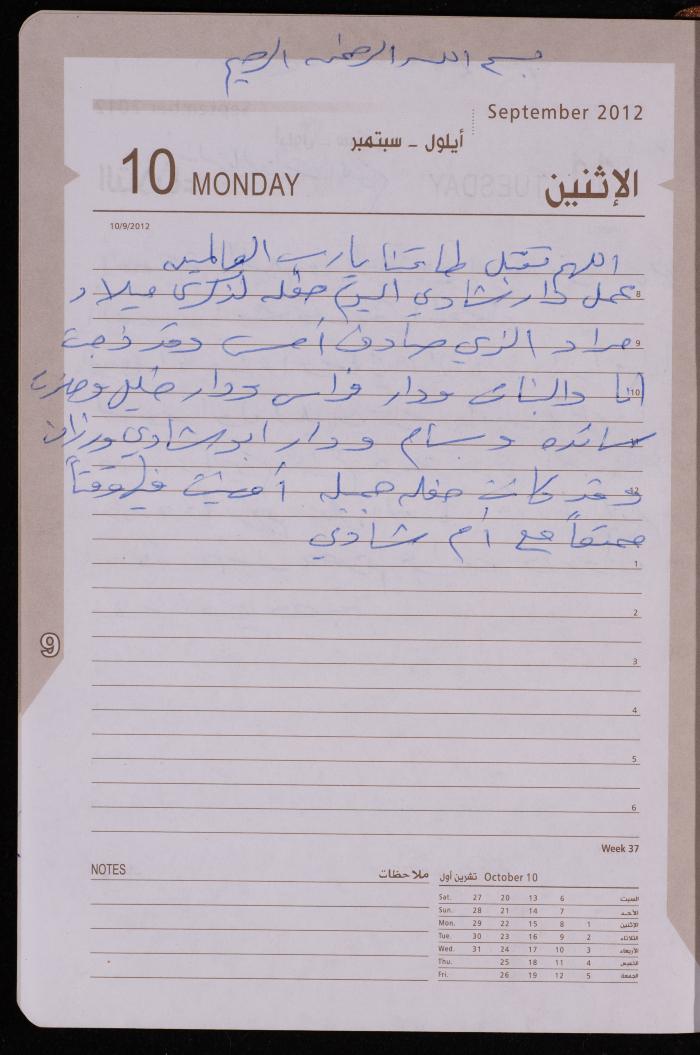 بسم الله الرحمن الرحيم
September 2012
أيلول - سبتمبر
10 MONDAY
الإثنين
10/9/2012
اللهم تقبل طاعتنا يا رب العالمين
عمل دار شادي اليوم حفله لذكرى ميلاد
8
مراد الذي صادف أمس وقد ذهبت
9
أنا والبنات ودار فراس ودار خليل
10
سائده وبسام ودار ابو شادي ورزان
وقد كانت حفله جميله أمضيت فيها وقتاً
12
ممتعاً مع أم شادي
1
2
3
9
4
5
6
Week 37
NOTES ملاحظات
October 10 تشرين أول
Sat. 27 20 13 6 السبت
Sun. 28 21 14 7 الأحد
Mon. 29 22 15 8 1 الإثنين
Tue. 30 23 16 9 2 الثلاثاء
Wed. 31 24 17 10 3 الأربعاء
Thu. 25 18 11 4 الخميس
Fri. 26 19 12 5 الجمعة